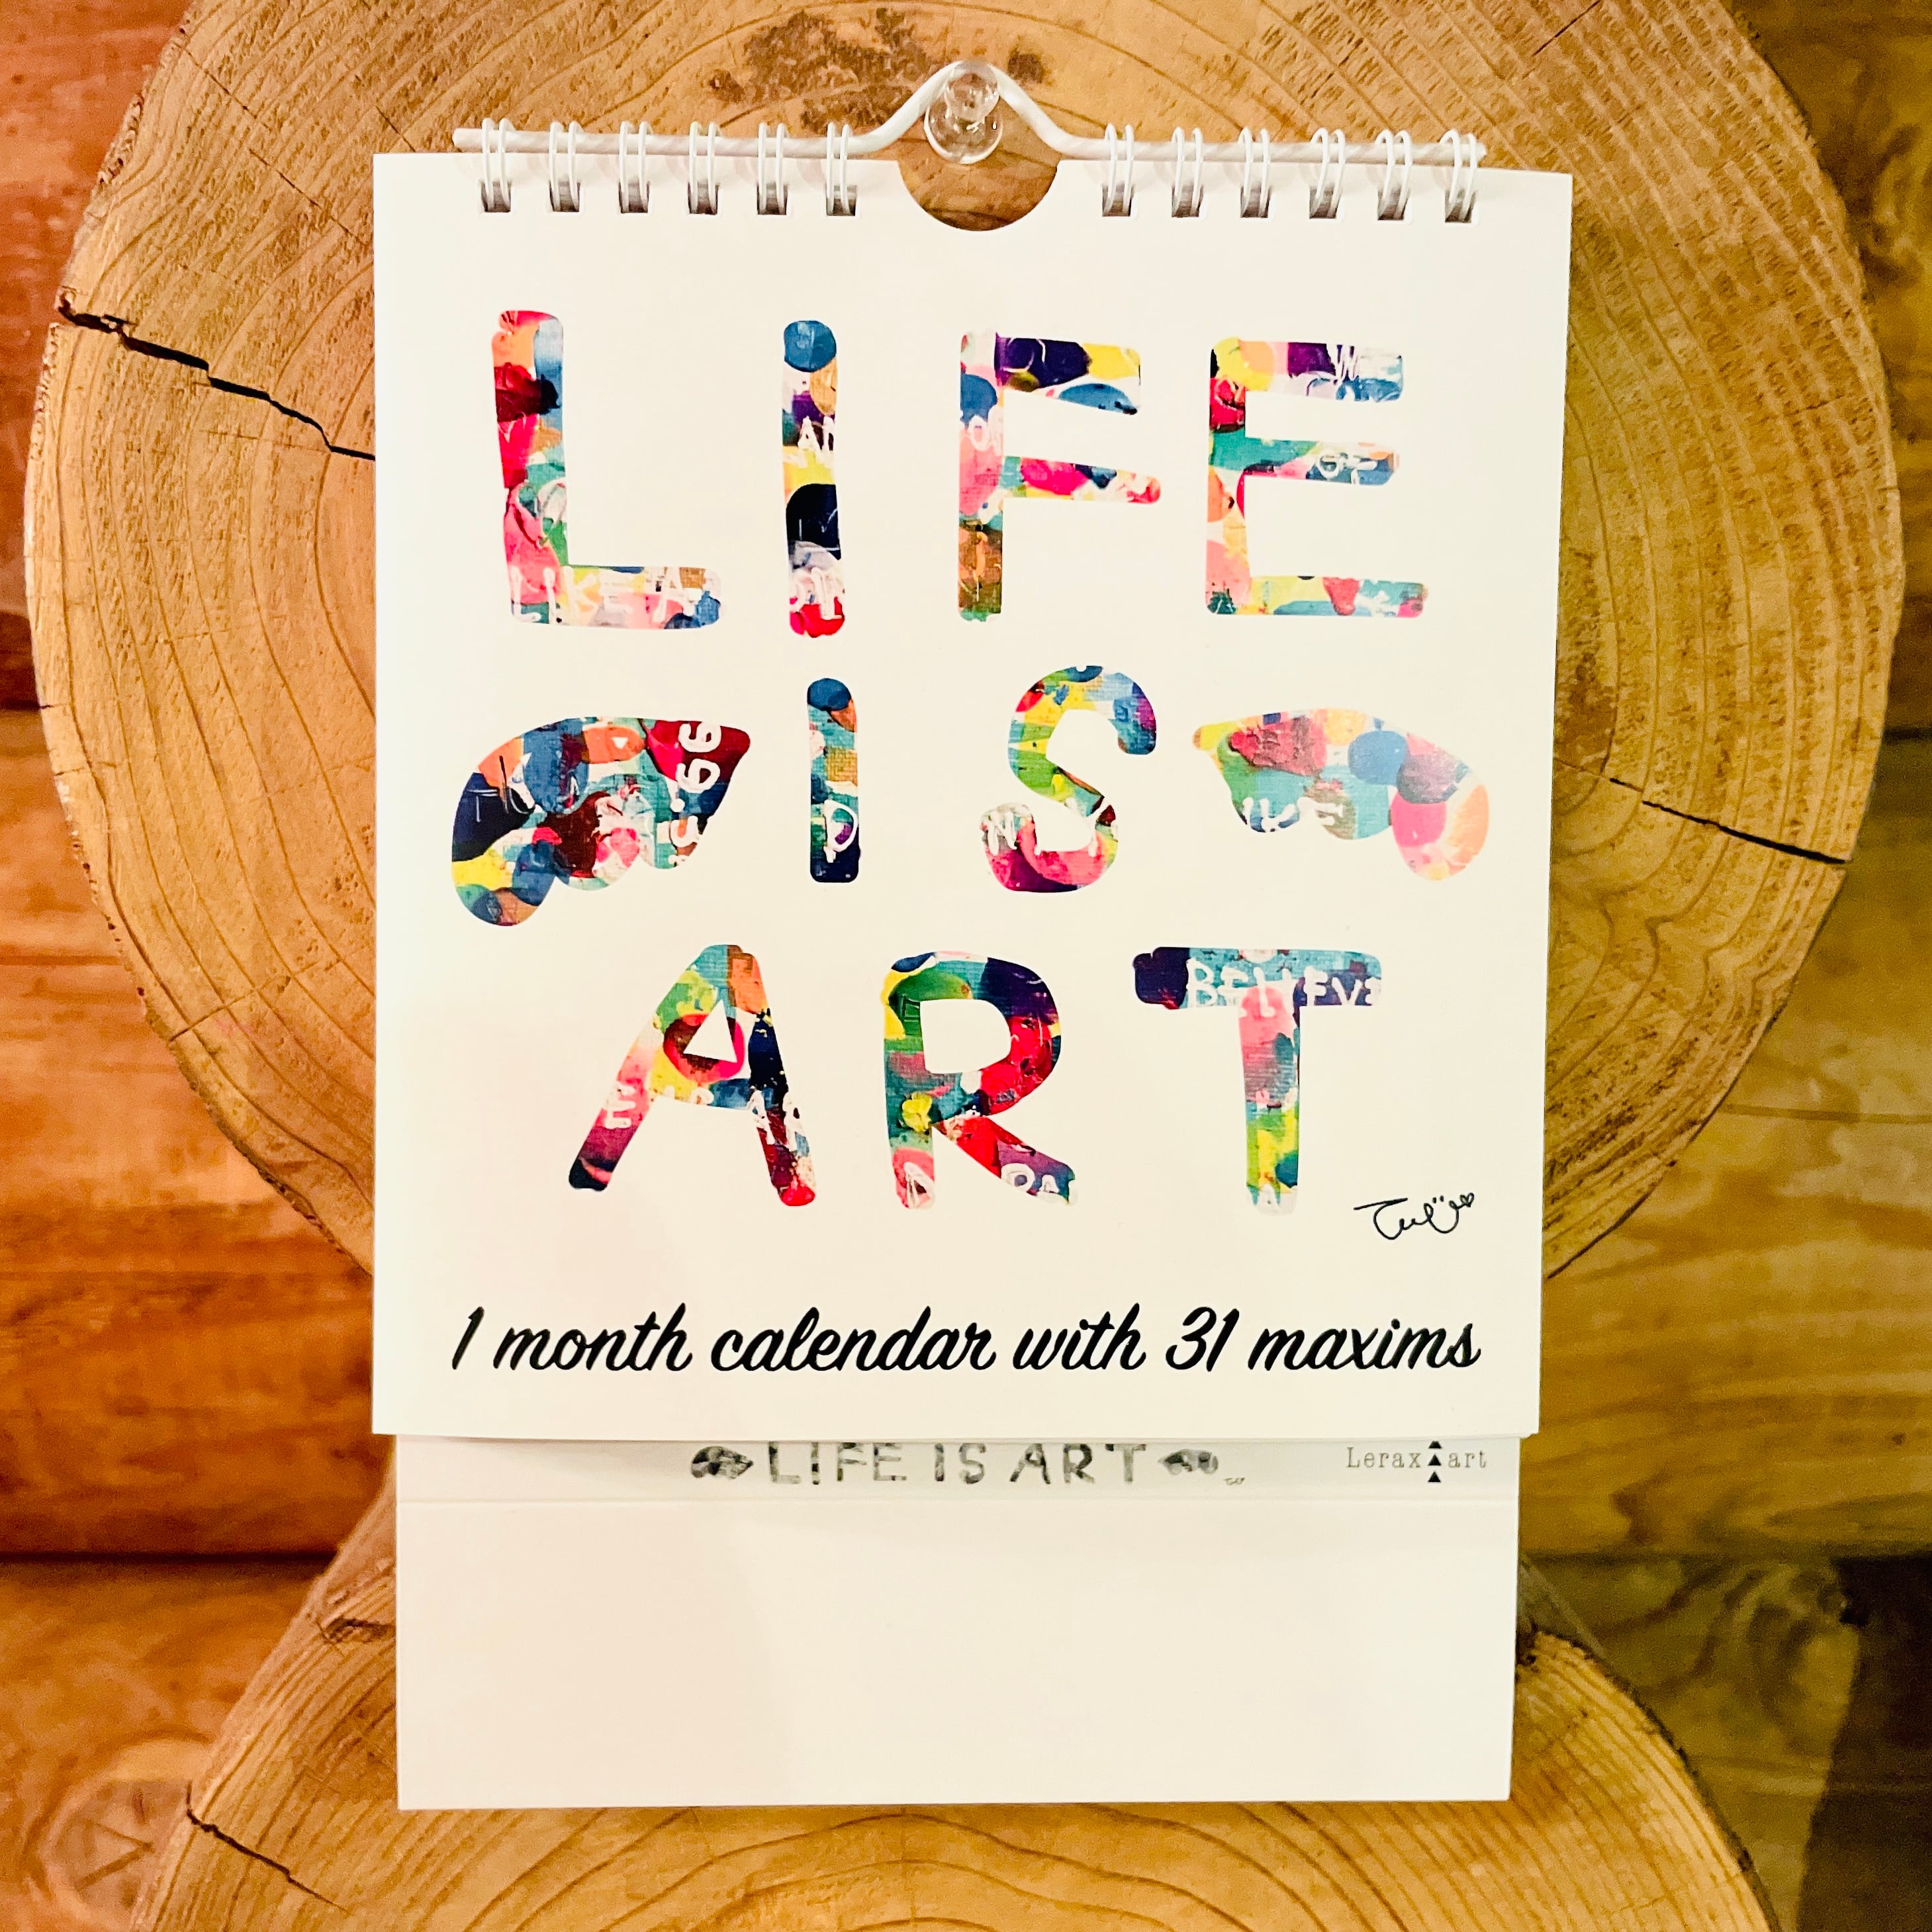 LIFE
IS
ART
BELIEVE
1 month calendar with 31 maxims
LIFE IS ART
Lerax art